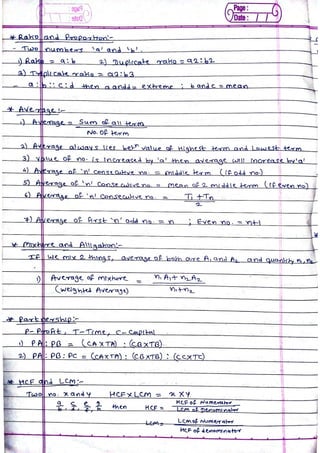 Page :
Date :
* Ratio and Proportion:-
- Two numbers 'a' and 'b'.
1) Ratio = a:b 2) Duplicate ratio = a2:b2
3) Triplicate ratio = a2:b3
- a:b::c:d then a and d = extreme ; b and c = mean
* Average:-
1) Average = Sum of all term
No. of term
2) Average always lies betn value of Highest term and Lowest term
3) value of no. is Increased by 'a' then average will Increase by 'a'
4) Average of 'n' consecutive no. = middle term (If odd no)
5) Average of 'n' consecutive no = mean of 2 middle term (If even no)
6) Average of 'n' consecutive no. = T1 + Tn
2
7) Average of first 'n' odd no. = n ; Even no. = n+1
* Mixture and Alligation:-
If we mix 2 things, average of both are A1 and A2 and quantity n1, n2
1) Average of mixture = n1A1 + n2A2
(weighted Average) n1+n2
* Partnership:-
P- Profit, T-Time, C- Capital
1) PA : PB = (CAXTA) : (CBXTB)
2) PA : PB : PC = (CAXTA) : (CBXTB) : (CCXTC)
* HCF and LCM:-
Two no. x and y HCF X LCM = x X y
then HCF = HCF of Numerator
LCM of Denominator
LCM = LCM of Numerator
HCF of denominator